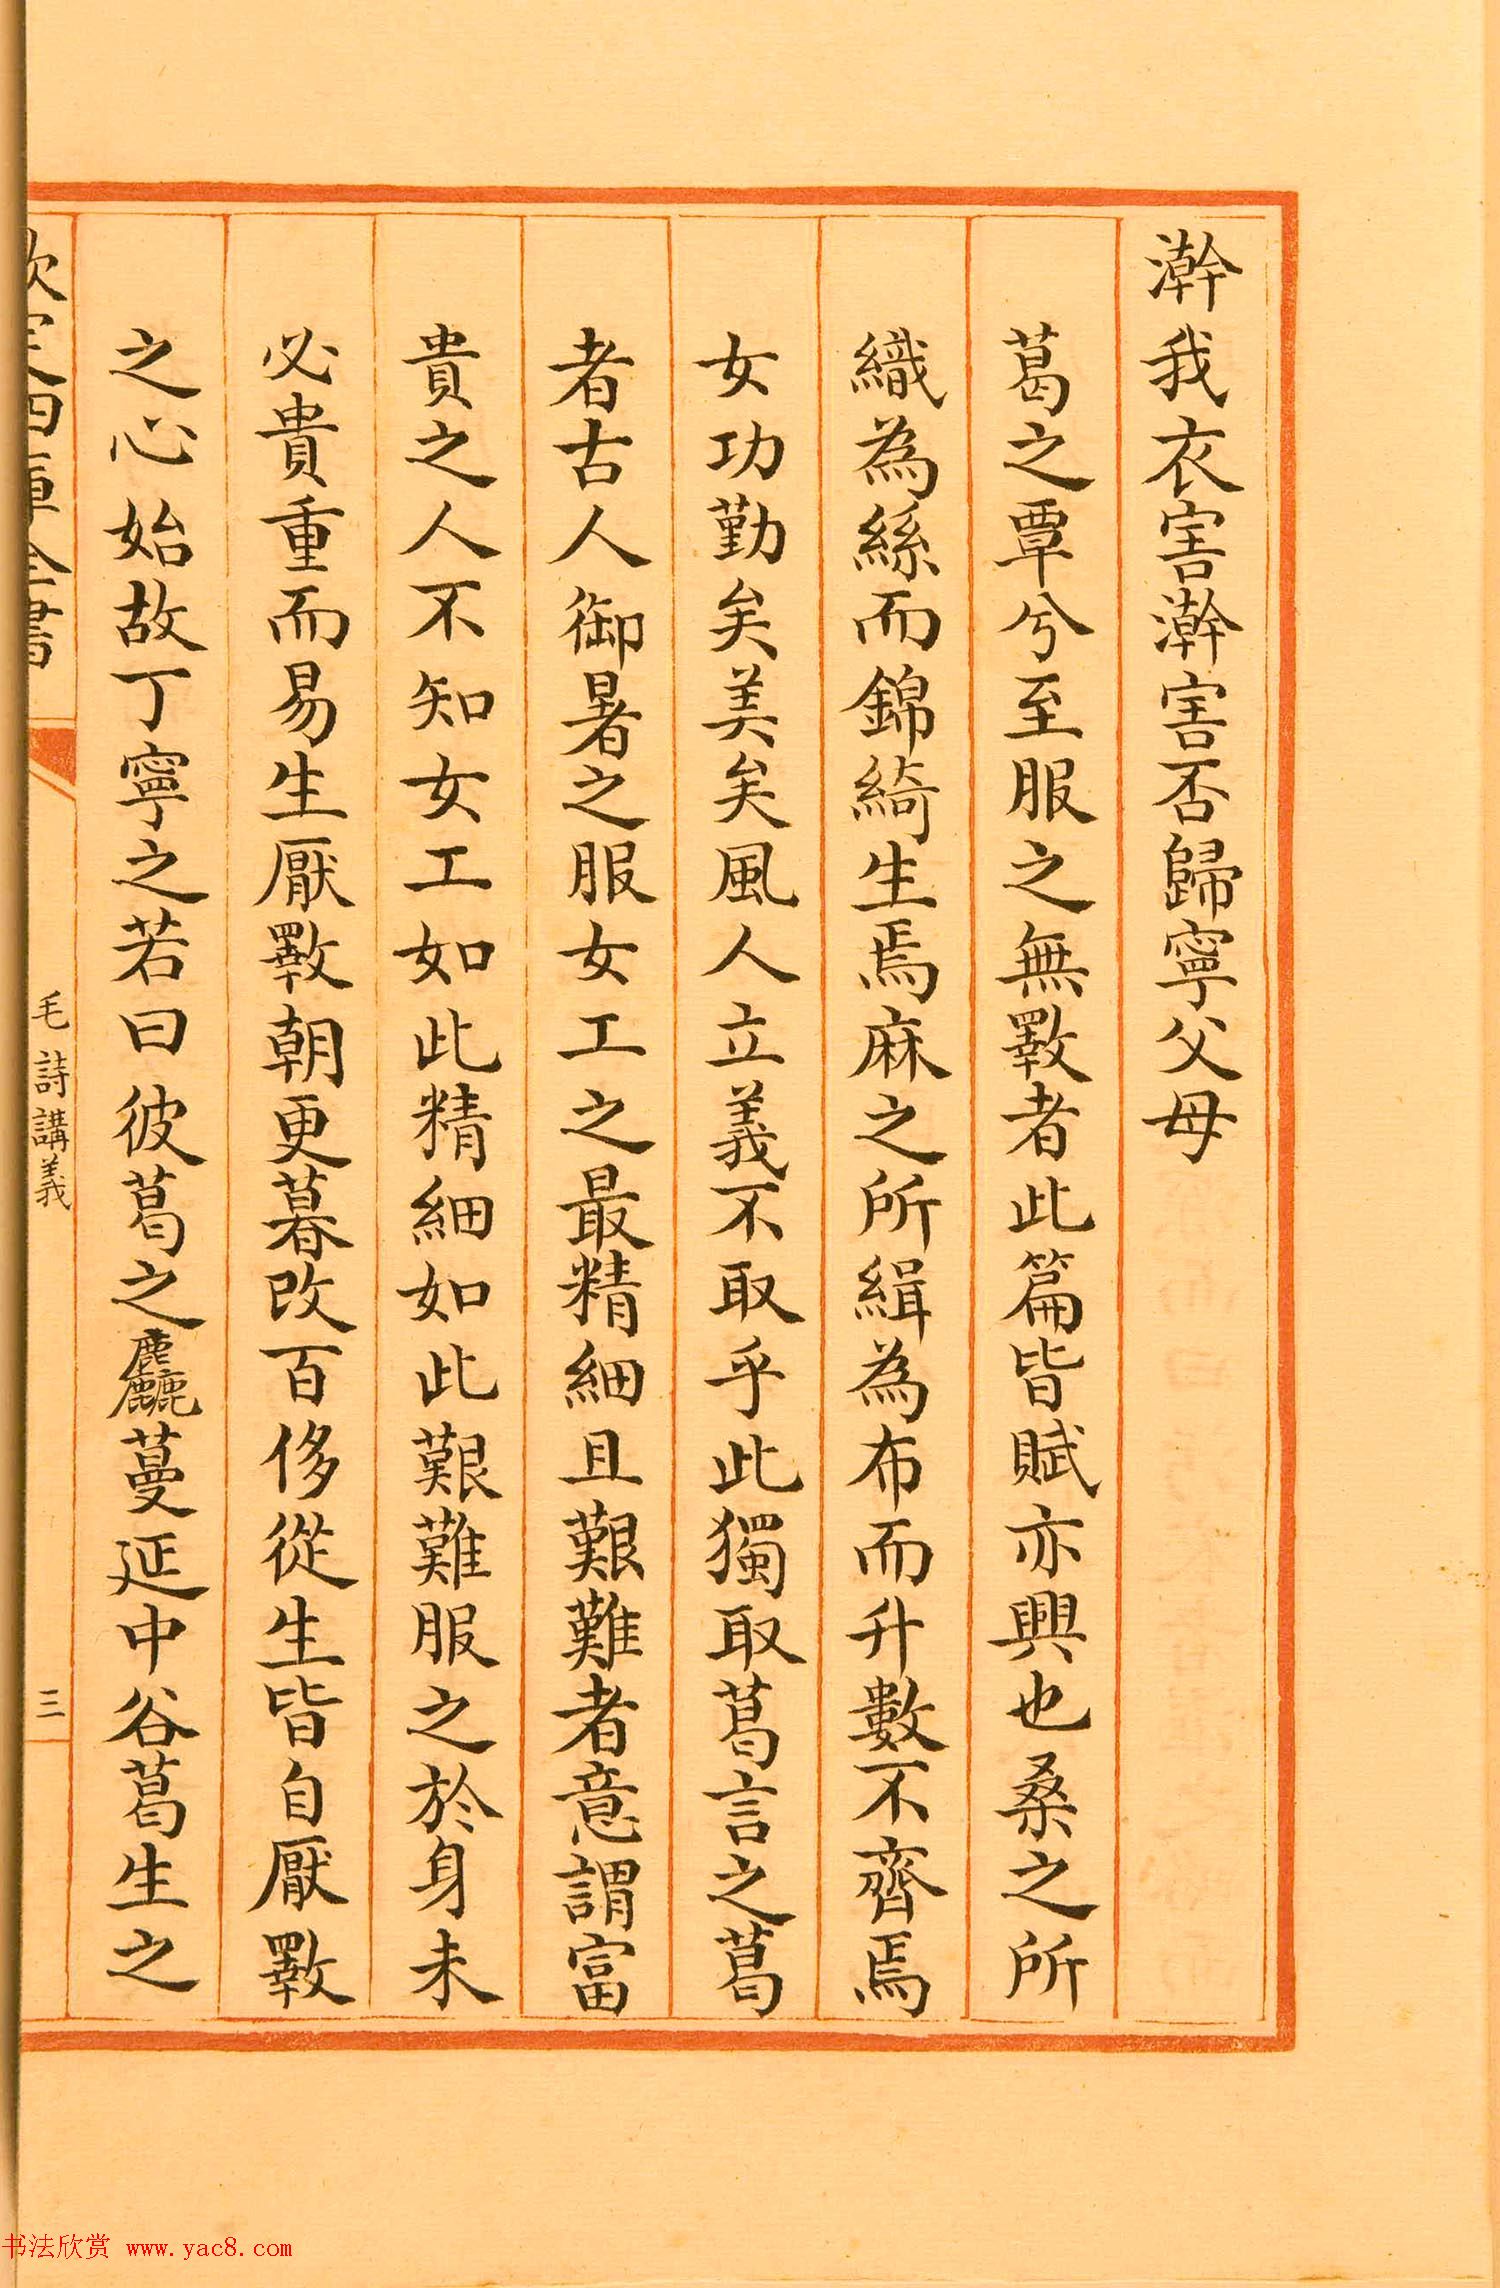 澣我衣害澣害否歸寧父母
葛之覃兮至服之無斁者此篇皆賦亦興也桑之所
織為絲而錦綺生焉麻之所緝為布而升數不齊焉
女功勤矣美矣風人立義不取乎此獨取葛言之葛
者古人御暑之服女工之最精細且艱難者意謂富
貴之人不知女工如此精細如此艱難服之於身未
必貴重而易生厭斁朝更暮改百侈從生皆自厭斁
之心始故丁寧之若曰彼葛之麤蔓延中谷葛生之
欽定四庫全書
毛詩講義
三
书法欣赏 www.yac8.com